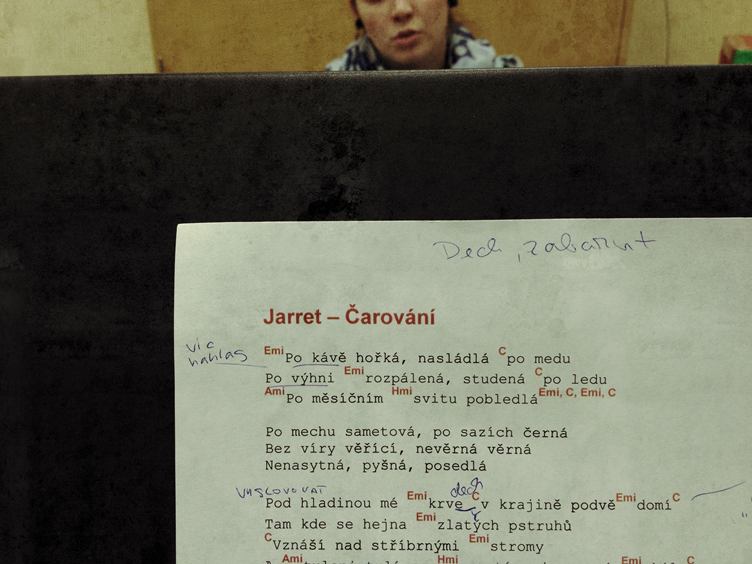 Dech, zabarvit
Jarret – Čarování
víc
nahlas
Emi Po kávě hořká, nasládlá C po medu
Po výhni Emi rozpálená, studená C po ledu
Ami Po měsíčním Hmi svitu pobledlá Emi, C, Emi, C
Po mechu sametová, po sazích černá
Bez víry věřící, nevěrná věrná
Nenasytná, pyšná, posedlá
VYSLOVOVAT
dech
Pod hladinou mé Emi krve C v krajině podvě Emi domí C
Tam kde se hejna Emi zlatých pstruhů
C Vznáší nad stříbrnými Emi stromy
Ami Hmi Emi C